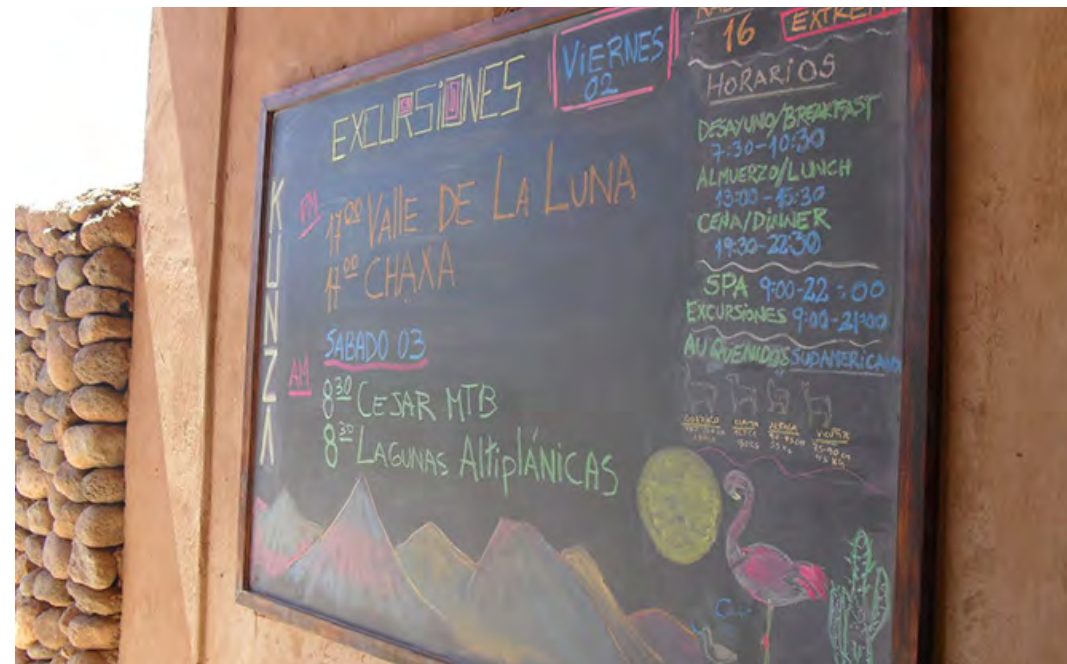 EXCURSIONES
VIERNES
02
KUNZA
PM
17:00 VALLE DE LA LUNA
17:00 CHAXA
SABADO 03
AM
8:30 CESAR MTB
8:30 LAGUNAS Altiplánicas
16
HORARIOS
DESAYUNO/BREAKFAST
7:30-10:30
ALMUERZO/LUNCH
13:00-15:30
CENA/DINNER
19:30-22:30
SPA 9:00-22:00
EXCURSIONES 9:00-21:00
AUQUENIDOS SUDAMERICANO